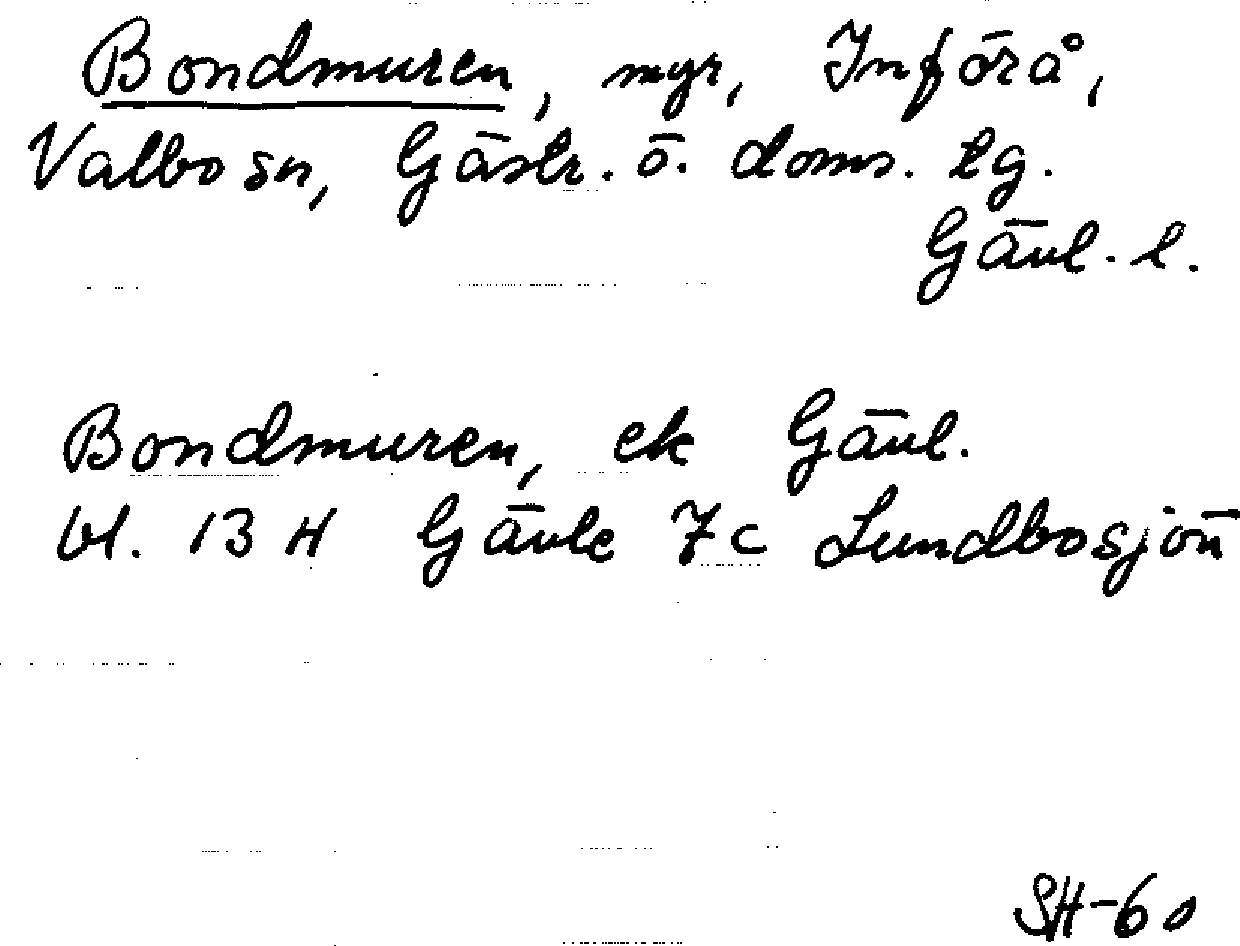 Bondmuren, myr, Införå,
Valbo sn, Gästr. ö. doms. tg.
Gävl. l.
Bondmuren, ek Gävl.
bl. 13 H Gävle 7c Lundbosjön
SH-60